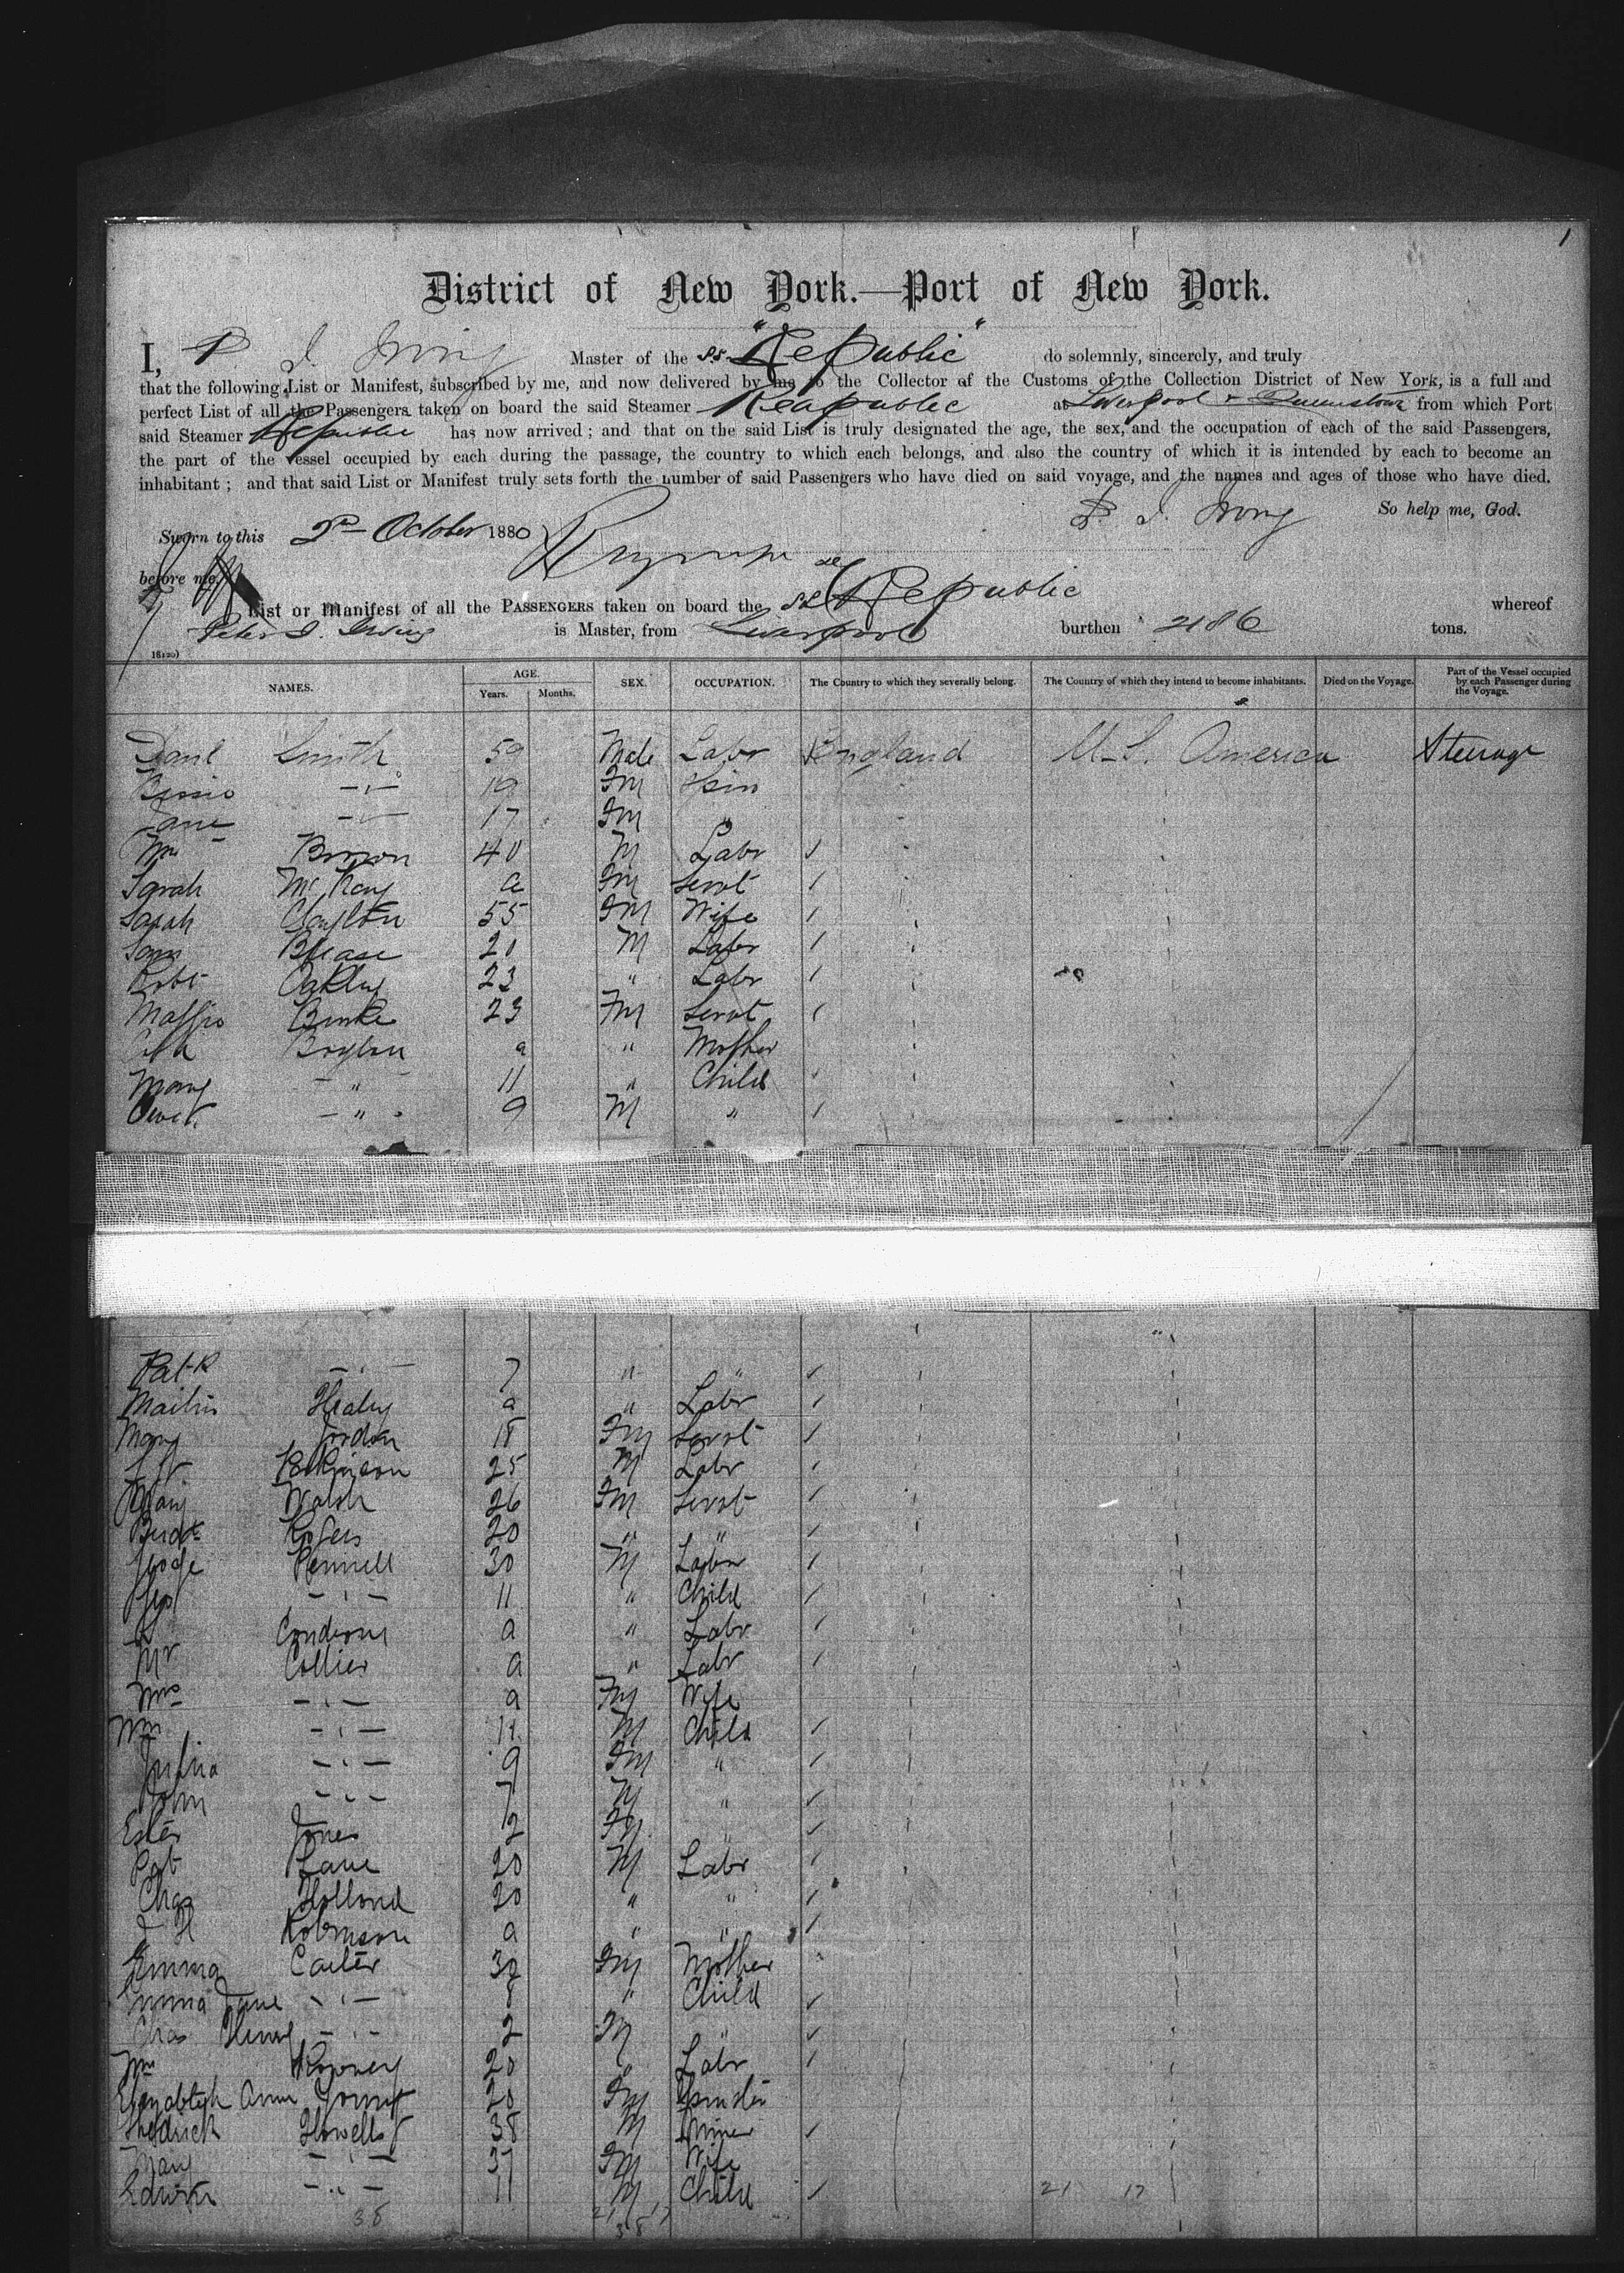 1
District of New York.—Port of New York.
I, P. J. Irving Master of the S.S. "Republic" do solemnly, sincerely, and truly
that the following List or Manifest, subscribed by me, and now delivered by me to the Collector of the Customs of the Collection District of New York, is a full and
perfect List of all the Passengers taken on board the said Steamer Reapublic at Liverpool & Queenstown from which Port
said Steamer Republic has now arrived; and that on the said List is truly designated the age, the sex, and the occupation of each of the said Passengers,
the part of the vessel occupied by each during the passage, the country to which each belongs, and also the country of which it is intended by each to become an
inhabitant; and that said List or Manifest truly sets forth the number of said Passengers who have died on said voyage, and the names and ages of those who have died.
P. J. Irving So help me, God.
Sworn to this 2 October 1880
before me,
List or Manifest of all the PASSENGERS taken on board the SS Republic whereof
Peter J. Irving is Master, from Liverpool burthen 2186 tons.
NAMES. AGE. Years. Months. SEX. OCCUPATION. The Country to which they severally belong. The Country of which they intend to become inhabitants. Died on the Voyage. Part of the Vessel occupied by each Passenger during the Voyage.
Danl Smith 59 Male Labr England U.S. America Steerage
Bessie —"— 19 Fm Spin
Jane —"— 17 Fm "
Wm Brown 40 M Labr
Sarah McKay a Fm Servt
Sarah Clayton 55 Fm Wife
Sam Blease 20 M Labr
Robt Oakley 23 " Labr
23 Fm Servt
a " Mother
Mary —"— 11 " Child
—"— 9 M "
Pat-k —"— 7 " "
Healy a " Labr
Mary Jordan 18 Fm Servt
Parkinson 25 M Labr
Mary Walsh 26 Fm Servt
Rogers 20 " "
Pennell 30 M Labr
—"— 11 " Child
a " Labr
Mr Collier a " Labr
Mrs —"— a Fm Wife
Wm —"— 11 M Child
Julia —"— 9 Fm "
John —"— 7 M "
Ester Jones Fm "
Pat Lane 20 M Labr
Chas Holland 20 " "
J H Robinson a " "
Emma Carter 32 Fm Mother
Emma Jane —"— 8 " Child
Chas Henry —"— 2 M "
Wm 20 " Labr
Elizabteh Ann 20 Fm Spinster
Shedrick Howells 38 M Miner
Mary —"— 37 Fm Wife
Edwin —"— 11 M Child 21 17
38 21 17
38